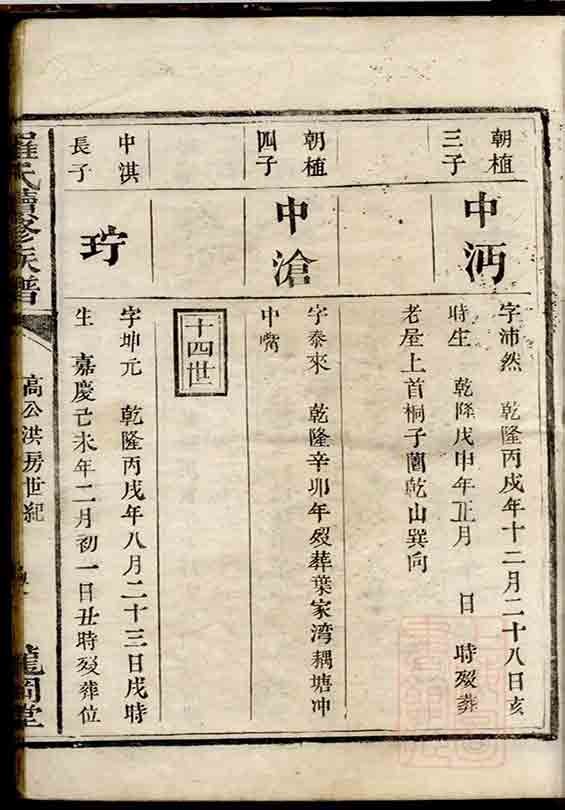 朝植
三子
中沔
字沛然　乾隆丙戌年十二月二十八日亥
時生　乾隆戊申年正月　日　時歿葬
老屋上首桐子園乾山巽向
朝植
四子
中滄
字泰來　乾隆辛卯年歿葬葉家湾耦塘冲
中嘴
十四世
中淇
長子
㺵
字坤元　乾隆丙戌年八月二十三日戌時
生　嘉慶己未年二月初一日丑時歿葬位
羅氏續修族譜
高公洪房世紀